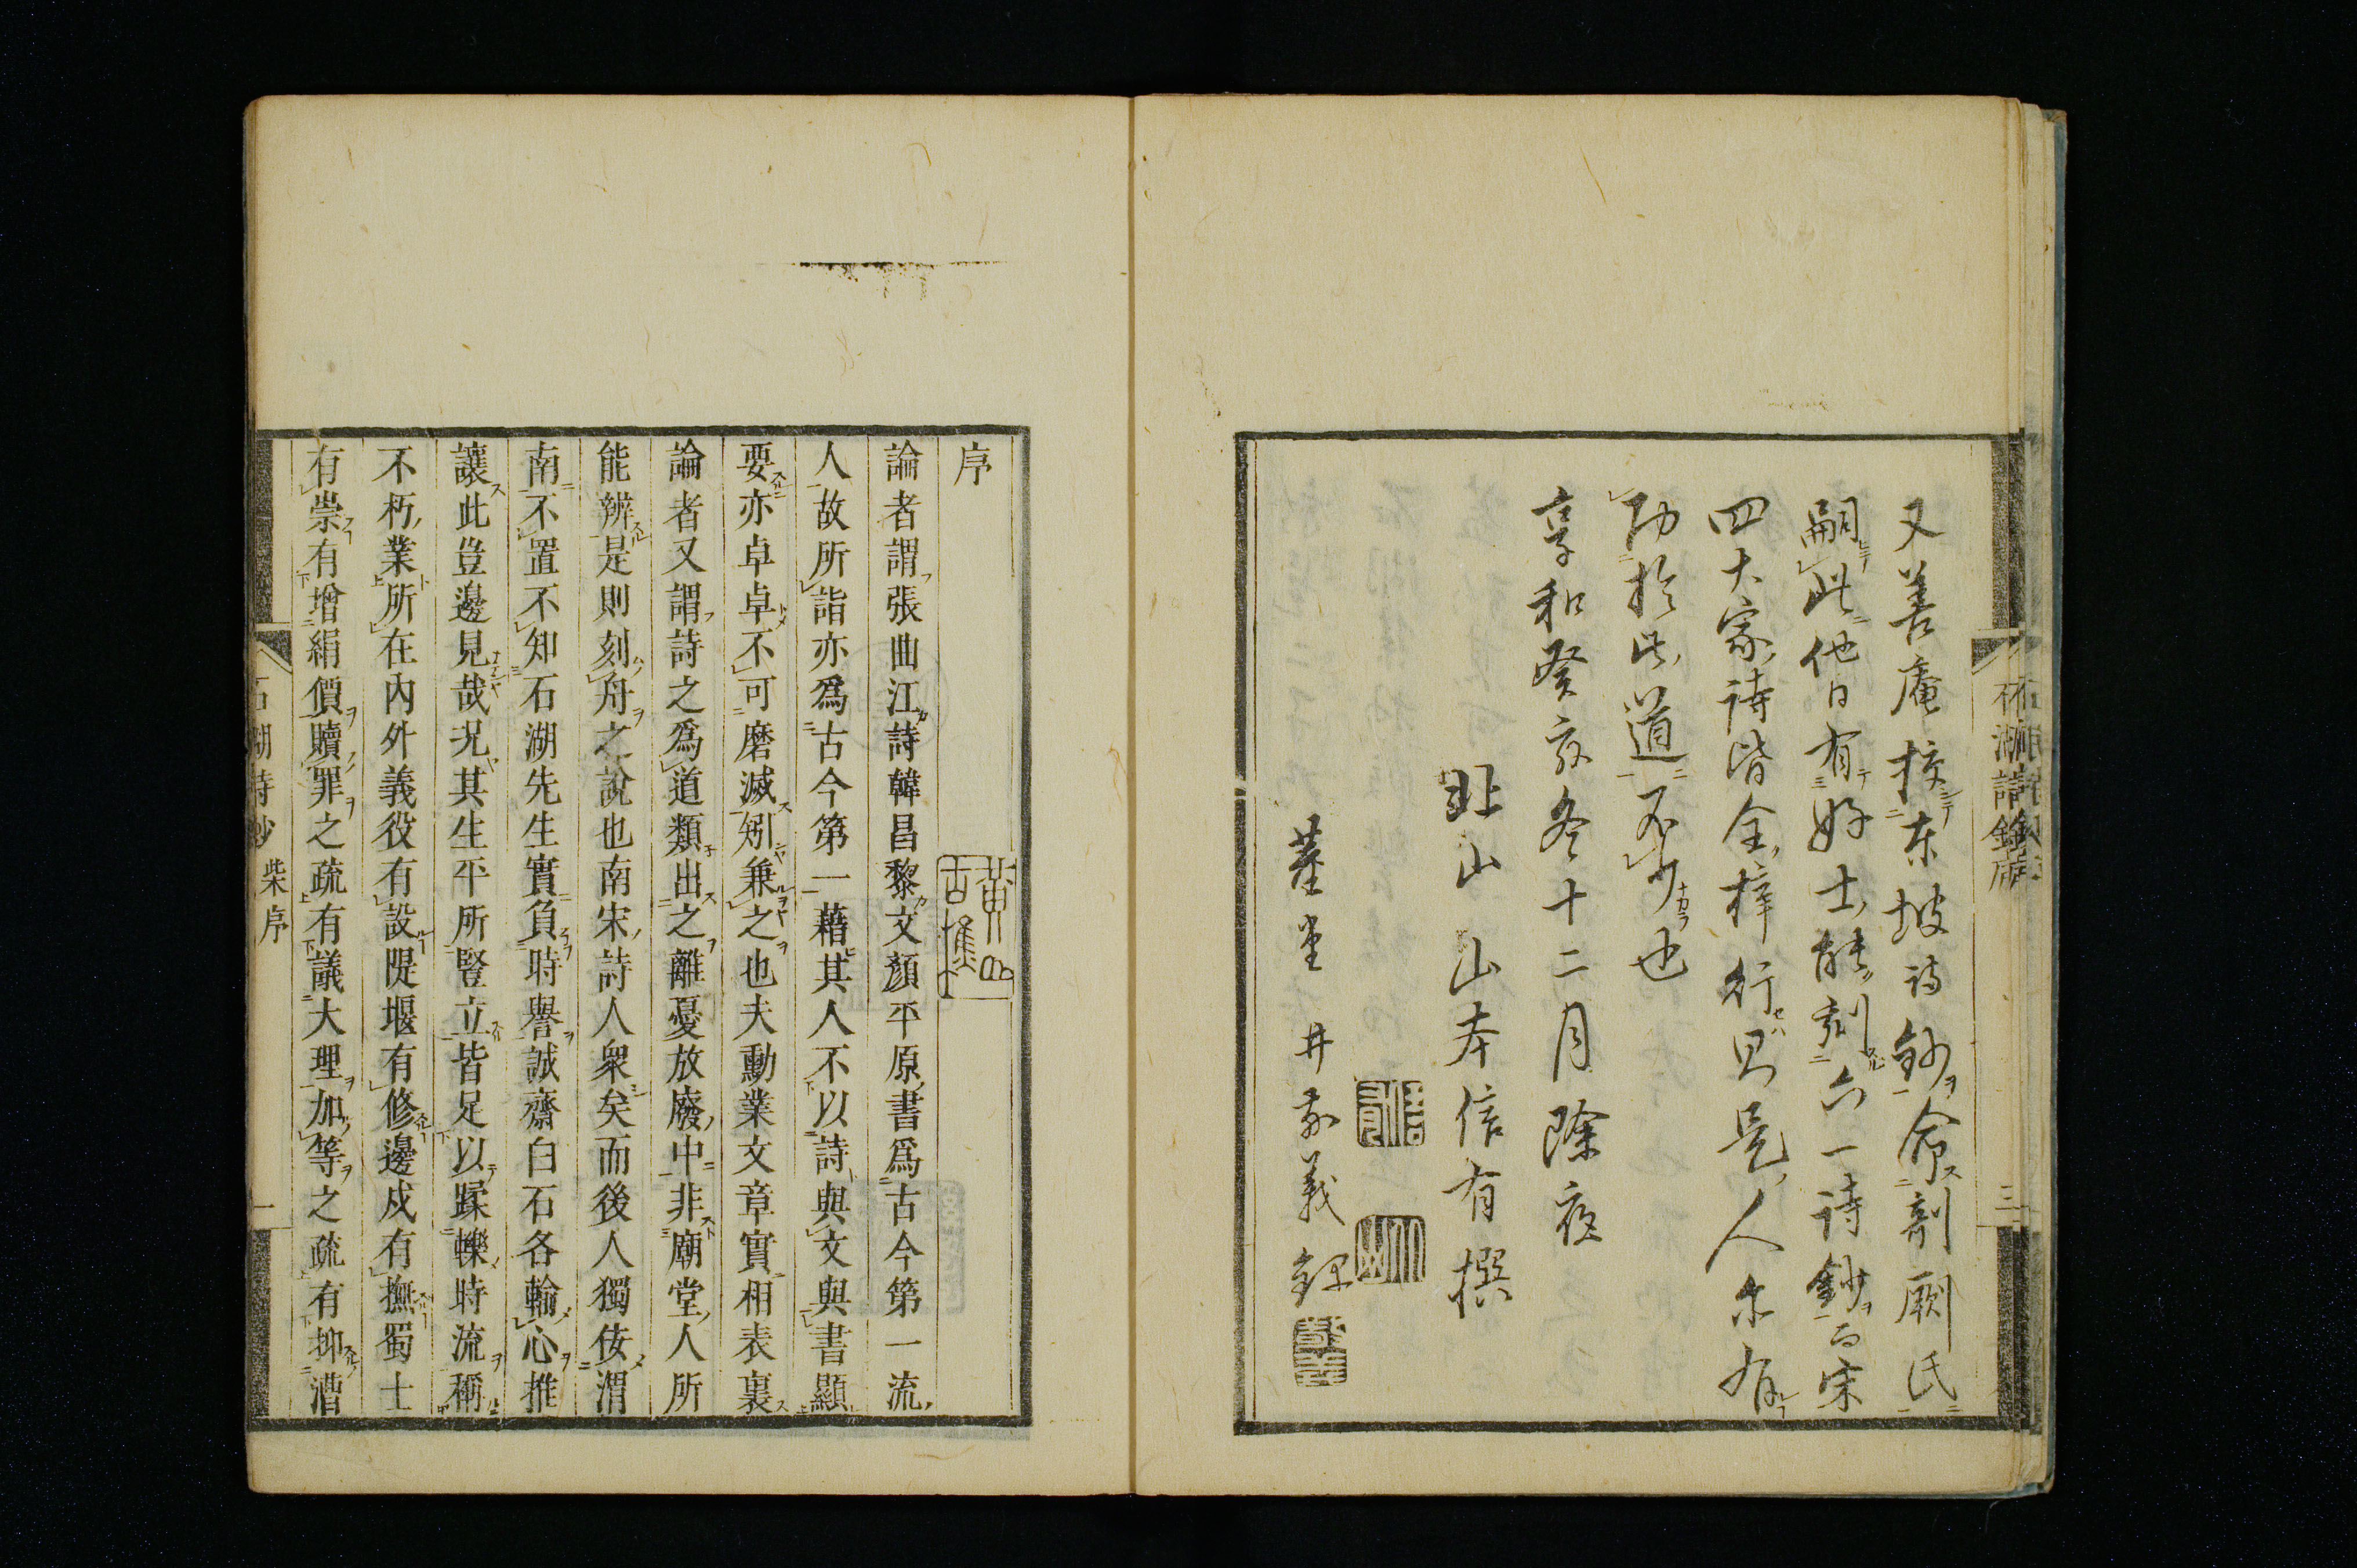 又善庵校東坡詩鈔命剞厥氏
嗣此他日有好士能刻六一詩鈔而宋
四大家詩皆全梓行則是人亦有
功於此道不少也
享和癸亥冬十二月除夜
北山山本信有撰
信有
井義錄
石湖詩鈔序
三
序
論者謂張曲江詩韓昌黎文顏平原書爲古今第一流
人故所詣亦爲古今第一藉其人不以詩與文與書顯
要亦卓卓不可磨滅矧兼之也夫勳業文章實相表裏
論者又謂詩之爲道類出之離憂放廢中非廟堂人所
能辨是則刻舟之說也南宋詩人衆矣而後人獨侫渭
南不置不知石湖先生實負時譽誠齋白石各輸心推
讓此豈邊見哉況其生平所豎立皆足以蹂轢時流稱
不朽業所在內外義役有設隄堰有修邊戍有撫蜀士
有祟有增絹價贖罪之疏有議大理加等之疏有抑漕
石湖詩鈔 柴序
一